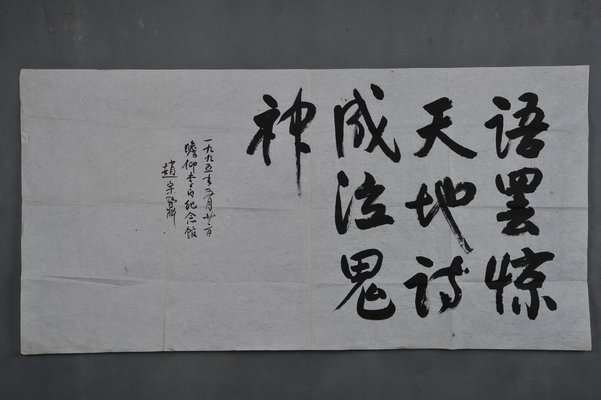 语罢惊
天地诗
成泣鬼
神
一九九五年月廿日
瞻仰李白纪念馆
趙宗鼐